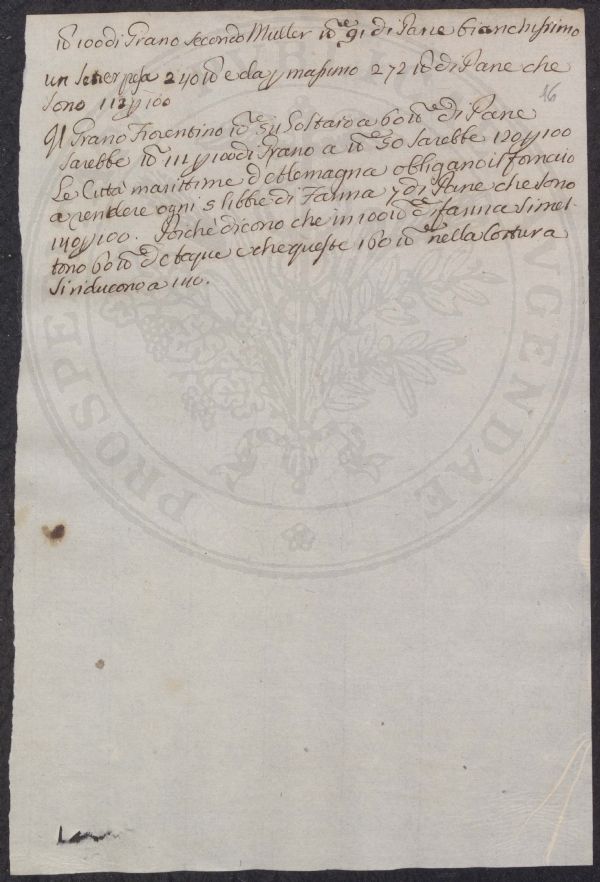 lb 100 di Grano secondo Muller lb.e 91 di Pane bianchissimo
un Setier pesa 240 lb e da p massimo 272 lb di Pane che
sono 113 p 100
16
Il Grano Fiorentino lb.e 54 lo Staro a 60 lb.e di Pane
sarebbe lb 111 p 100 di Grano a lb.e 50 sarebbe 120 p 100
Le Città marittime d'Alemagna obligano il fornaio
a rendere ogni 5 libbre di Farina 7 di Pane che sono
140 p 100. Poichè dicono che in 100 lb.e di farina si met-
tono 60 lb d'acque e che queste 160 lb.e nella Cottura
si riducono a 140.
PROSPE
GENDAE